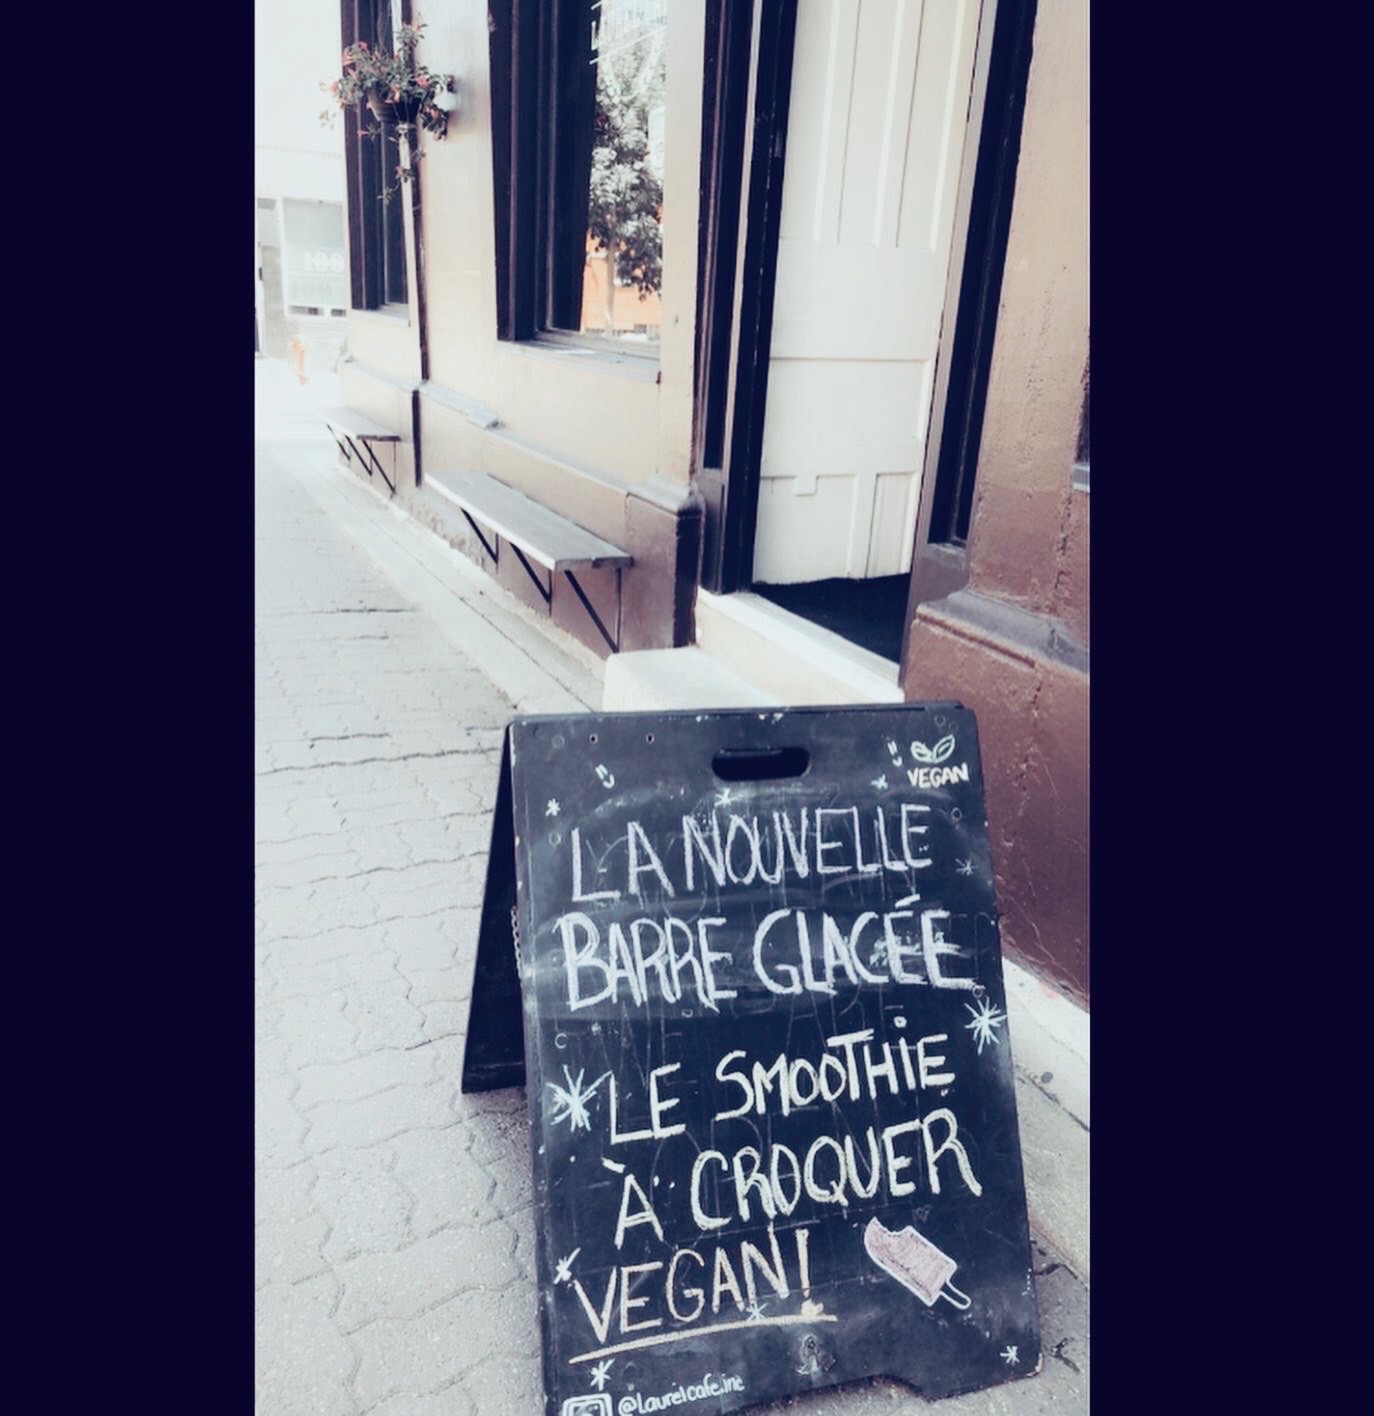 100
VEGAN
LA NOUVELLE
BARRE GLACÉE
LE SMOOTHIE
À CROQUER
VEGAN!
@laurelcafe.inc